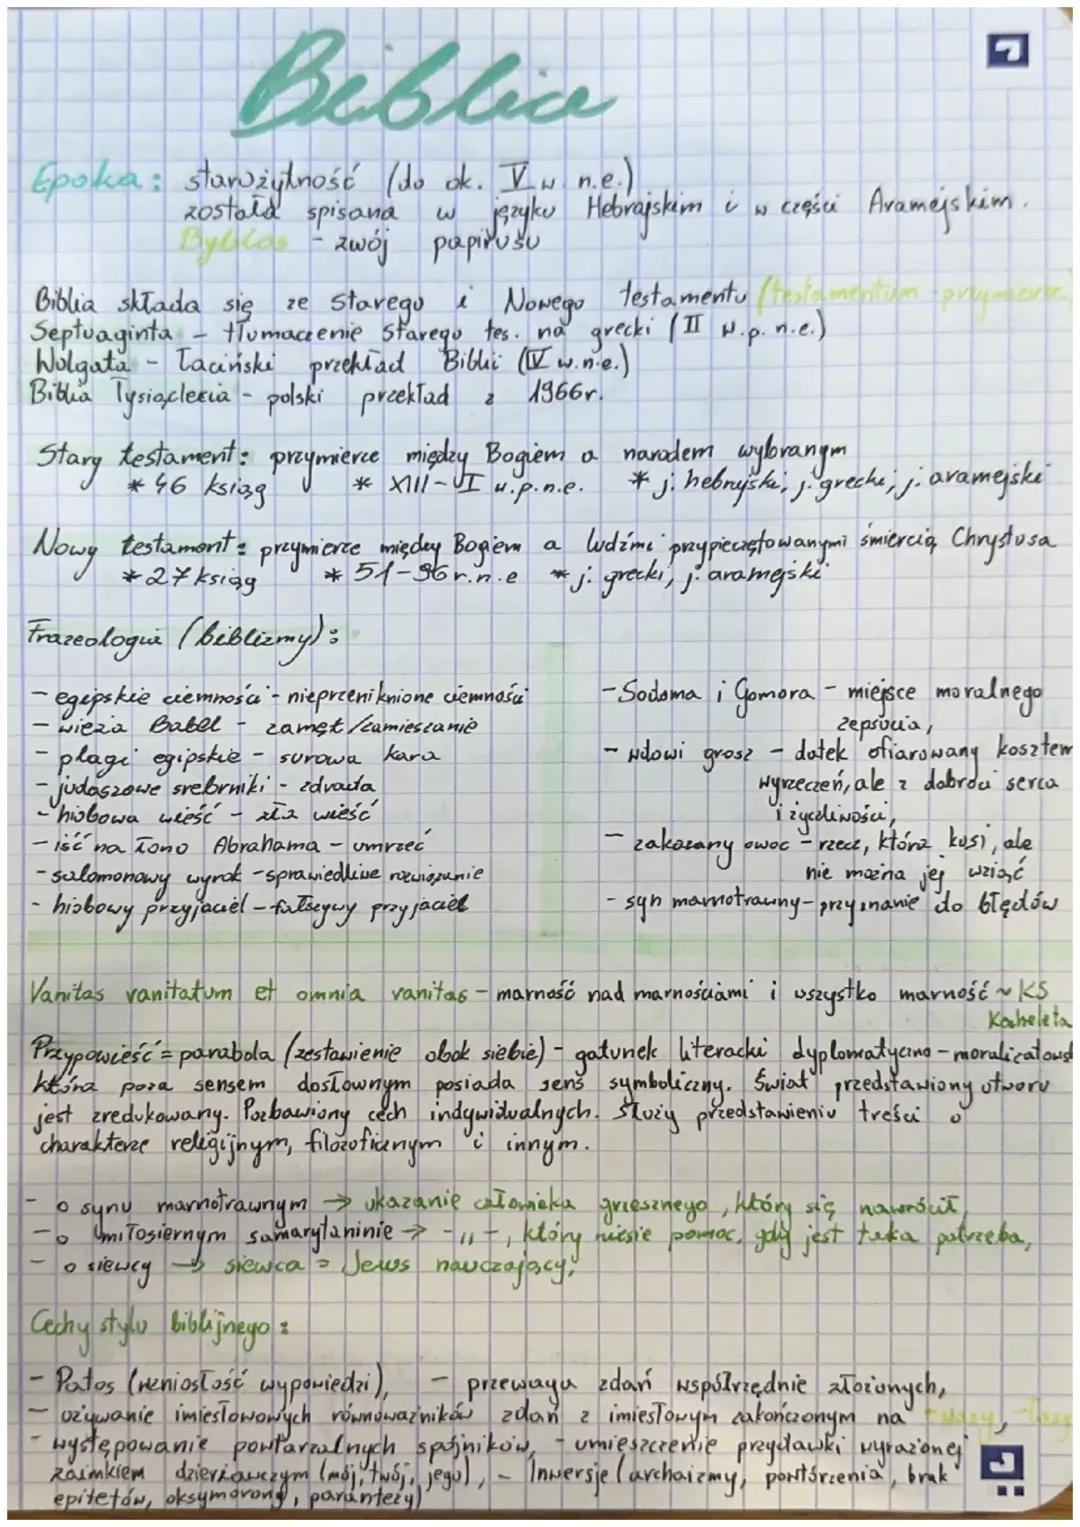 Biblia
Epoka: starożytność (do ok. V w. n.e.)
została spisana w języku Hebrajskim i w części Aramejskim.
Byblos - zwój papirusu
Biblia składa się ze Starego i Nowego testamentu (testamentum - przymierze)
Septuaginta - tłumaczenie Starego tes. na grecki (II w.p. n.e.)
Wulgata - łaciński przekład Biblii (IV w.n.e.)
Biblia Tysiąclecia - polski przekład z 1966r.
Stary testament: przymierze między Bogiem a narodem wybranym
* 46 ksiąg * XIII - I w.p.n.e. * j. hebrajski, j. grecki, j. aramejski
Nowy testament: przymierze między Bogiem a ludźmi przypieczętowanymi śmiercią Chrystusa
* 27 ksiąg * 51-96 r.n.e * j. grecki, j. aramejski
Frazeologia (biblizmy):
- egipskie ciemności - nieprzeniknione ciemności
- wieża Babel - zamęt/zamieszanie
- plagi egipskie - surowa kara
- judaszowe srebrniki - zdrada
- hiobowa wieść - zła wieść
- iść na łono Abrahama - umrzeć
- salomonowy wyrok - sprawiedliwe rozwiązanie
- hiobowy przyjaciel - fałszywy przyjaciel
- Sodoma i Gomora - miejsce moralnego
zepsucia,
- wdowi grosz - datek ofiarowany kosztem
wyrzeczeń, ale z dobroci serca
i życzliwości,
- zakazany owoc - rzecz, która kusi, ale
nie można jej wziąć
- syn marnotrawny - przyznanie do błędów
Vanitas vanitatum et omnia vanitas - marność nad marnościami i wszystko marność ~ KS
Koheleta
Przypowieść = parabola (zestawienie obok siebie) - gatunek literacki dyplomatyczno - moralizatowsk
która poza sensem dosłownym posiada sens symboliczny. Świat przedstawiony utworu
jest zredukowany. Pozbawiony cech indywidualnych. Służy przedstawieniu treści o
charakterze religijnym, filozoficznym i innym.
- o synu marnotrawnym → ukazanie człowieka grzesznego, który się nawrócił,
- o miłosiernym samarytaninie → -,,-, który niesie pomoc, gdy jest taka potrzeba,
- o siewcy → siewca = Jezus nauczający,
Cechy stylu biblijnego:
- Patos (wzniosłość wypowiedzi), - przewaga zdań współrzędnie złożonych,
- używanie imiesłowowych równoważników zdań z imiesłowym zakończonym na -wszy, -łszy
- występowanie powtarzalnych spójników, - umieszczenie przydawki wyrażonej
zaimkiem dzierżawczym (mój, twój, jego), - Inwersje (archaizmy, powtórzenia, brak
epitetów, oksymorony, parantezy)